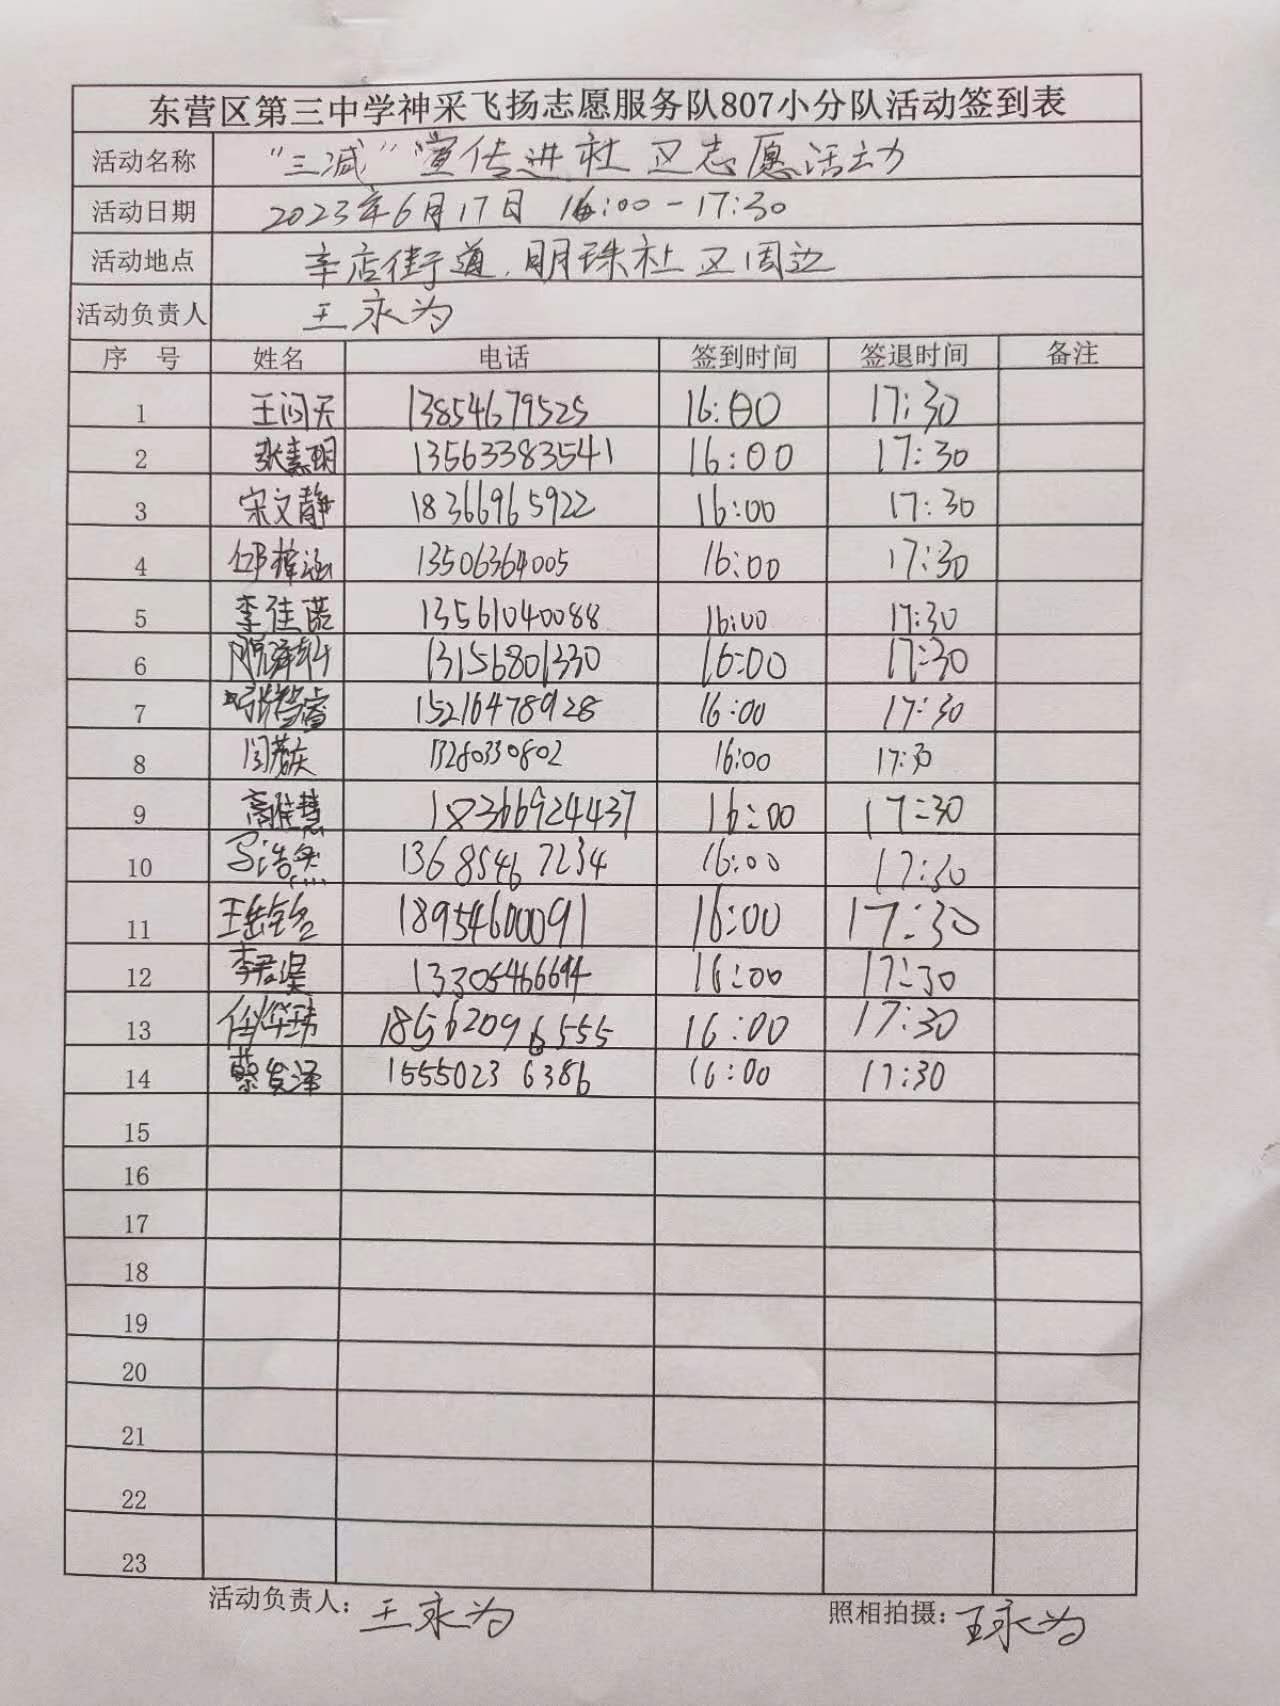 东营区第三中学神采飞扬志愿服务队807小分队活动签到表
活动名称 “三减”宣传进社区志愿活动
活动日期 2023年6月17日 16:00-17:30
活动地点 辛店街道,明珠社区周边
活动负责人 王永为
序 号 姓名 电话 签到时间 签退时间 备注
1 王问天 13854679525 16:00 17:30
2 13563383541 16:00 17:30
3 宋文静 18366965922 16:00 17:30
4 13506364005 16:00 17:30
5 李佳蓓 13561040088 16:00 17:30
6 13156801330 16:00 17:30
7 15216478928 16:00 17:30
8 13280330802 16:00 17:30
9 高佳慧 18366924437 16:00 17:30
10 马浩然 13685467234 16:00 17:30
11 18954600091 16:00 17:30
12 13305466694 16:00 17:30
13 18562096555 16:00 17:30
14 15550236386 16:00 17:30
15
16
17
18
19
20
21
22
23
活动负责人：王永为 照相拍摄：王永为